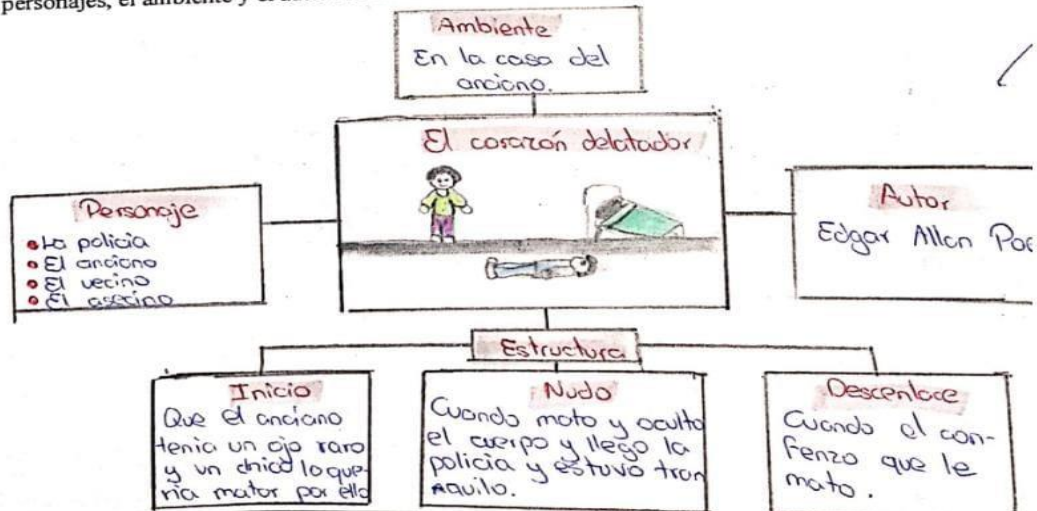 personajes, el ambiente y el
Ambiente
En la casa del
anciano.
El corazón delatador
Personaje
La policia
El anciano
El vecino
El asecino
Autor
Edgar Allan Poe
Estructura
Inicio
Que el anciano
tenia un ojo raro
y un chico lo que-
ria matar por ello
Nudo
Cuando mato y oculto
el cuerpo y llego la
policia y estuvo tran
quilo.
Descenlace
Cuando el con-
fenzo que le
mato.